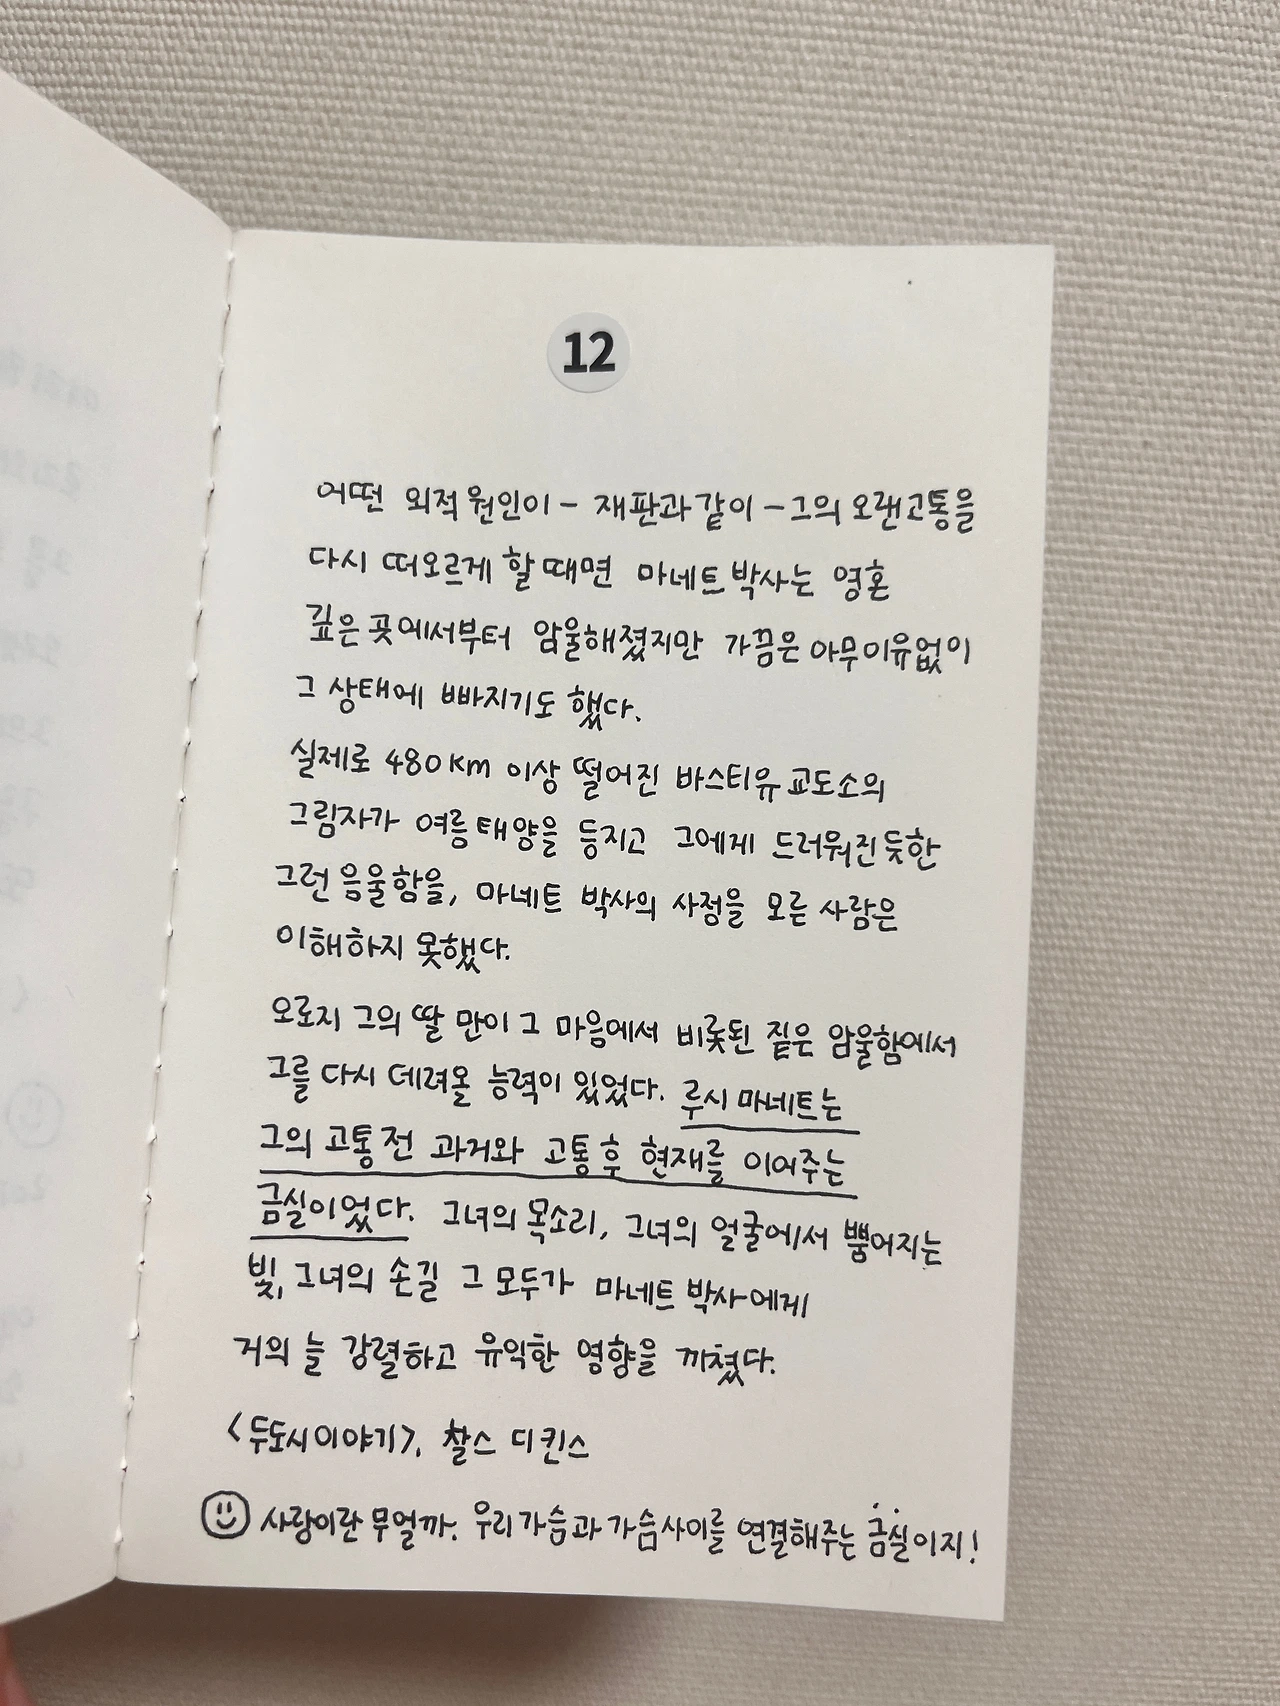 12
어떤 외적 원인이 - 재판과 같이 - 그의 오랜 고통을
다시 떠오르게 할 때면 마네트 박사는 영혼
깊은 곳에서부터 암울해졌지만 가끔은 아무 이유 없이
그 상태에 빠지기도 했다.
실제로 480km 이상 떨어진 바스티유 교도소의
그림자가 여름 태양을 등지고 그에게 드리워진 듯한
그런 음울함을, 마네트 박사의 사정을 모르는 사람은
이해하지 못했다.
오로지 그의 딸 만이 그 마음에서 비롯된 짙은 암울함에서
그를 다시 데려올 능력이 있었다. 루시 마네트는
그의 고통 전 과거와 고통 후 현재를 이어주는
금실이었다. 그녀의 목소리, 그녀의 얼굴에서 뿜어지는
빛, 그녀의 손길 그 모두가 마네트 박사에게
거의 늘 강렬하고 유익한 영향을 끼쳤다.
<두도시이야기>, 찰스 디킨스
사랑이란 무얼까. 우리 가슴과 가슴 사이를 연결해주는 금실이지!